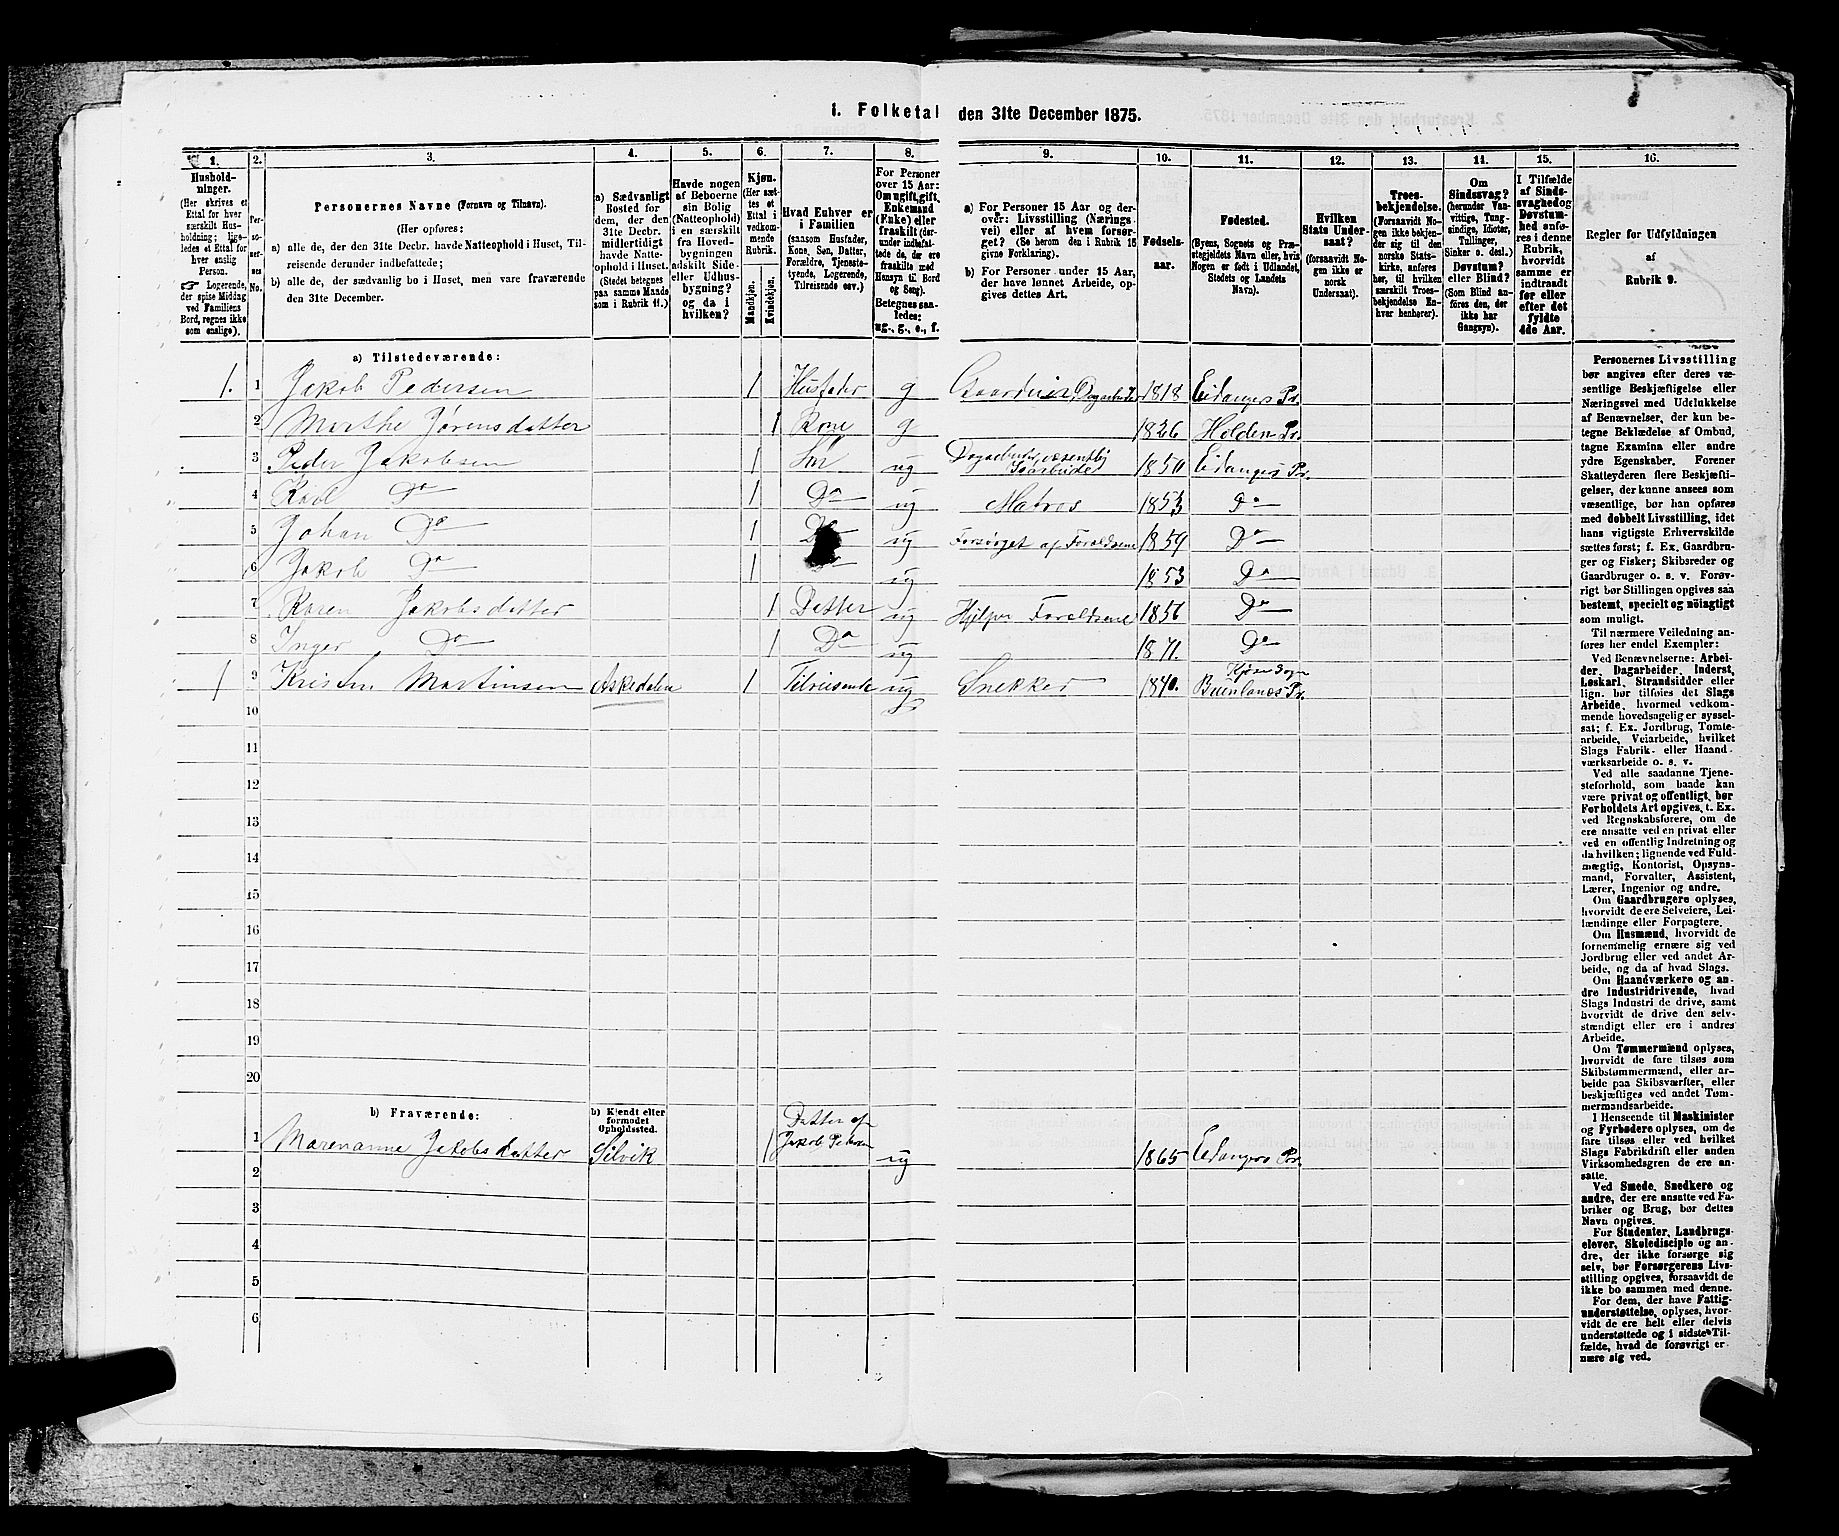 1. Folketal den 31te December 1875.
1. 2. 3. 4. 5. 6. 7. 8. 9. 10. 11. 12. 13. 14. 15. 16.
Hushold-
ninger.
(Her skrives et
Ettal for hver
særskilt Hus-
holdning; lige-
ledes et Ettal for
hver enslig
Person.
Logerende,
der spise Middag
ved Familiens
Bord, regnes ikke
som enslige).
Per-
so-
ner-
nes
No.
Personernes Navne (Fornavn og Tilnavn).
(Her opføres:
a) alle de, der den 31te Decbr. havde Natteophold i Huset, Til-
reisende derunder indbefattede;
b) alle de, der sædvanlig bo i Huset, men vare fraværende
den 31te December.
a) Sædvanligt
Bosted for
dem, der den
31te Decbr.
midlertidigt
havde Natte-
ophold i Huset.
(Stedet betegnes
paa samme Maade
som i Rubrik 11.)
Havde nogen
af Beboerne
sin Bolig
(Natteophold)
i en særskilt
fra Hoved-
bygningen
adskilt Side-
eller Udhus-
bygning?
og da i
hvilken?
Kjøn.
(Her sæt-
tes et
Ettal i
vedkom-
mende
Rubrik.
Mandkjøn.
Kvindekjøn.
Hvad Enhver er
i Familien
(saasom Husfader,
Kone, Søn, Datter,
Forældre, Tjeneste-
tyende, Logerende,
Tilreisende osv.)
For Personer
over 15 Aar:
Om ugift, gift,
Enkemand
(Enke) eller
fraskilt (der-
under indbefat-
tede de, der ere
fraskilte med
Hensyn til Bord
og Seng).
Betegnes saa-
ledes:
ug., g., e., f.
a) For Personer 15 Aar og der-
over: Livsstilling (Nærings-
vei) eller af hvem forsør-
get? (Se herom den i Rubrik 16
givne Forklaring).
b) For Personer under 15 Aar,
der have lønnet Arbeide, op-
gives dettes Art.
Fødsels-
aar.
Fødested.
(Byens, Sognets og Præ-
stegjeldets Navn eller, hvis
Nogen er født i Udlandet,
Stedets og Landets
Navn).
Hvilken
Stats Under-
saat?
(forsaavidt No-
gen ikke er
norsk
Undersaat).
Troes-
bekjendelse.
(Forsaavidt No-
gen ikke bekjen-
der sig til den
norske Stats-
kirke, anføres
her, til hvilken
særskilt Troes-
bekjendelse En-
hver henhører).
Om
Sindssvag?
(herunder Van-
vittige, Tung-
sindige, Idioter,
Tullinger,
Sinker o. desl.)
Døvstum?
eller Blind?
(Som Blind an-
føres den, der
ikke har
Gangsyn).
I Tilfælde
af Sinds-
svaghed og
Døvstum-
hed anfø-
res i denne
Rubrik,
hvorvidt
samme er
indtraadt
før eller
efter det
fyldte
4de Aar.
Regler for Udfyldningen
af
Rubrik 9.
a) Tilstedeværende:
1. 1 Jakob Pedersen 1 Husfader g Gaardeier Dagarbeider 1818 Eidangers Pr.
2 Marthe Jørensdatter 1 Kone g 1826 Holden Pr.
3 Peder Jakobsen 1 Søn ug 1850 Eidangers Pr.
4 Karl Do 1 Do ug Matros 1853 Do
5 Johan Do 1 ug Forsørget af Forældrene 1859 Do
6 Jakob Do 1 ug Do
7 Karen Jakobsdatter 1 Datter ug Hjelper Forældrene 1856 Do
8 Inger Do 1 Do ug 1871. Do
1 9 Kristen Martinsen Askedalen 1 Tilreisende ug Snekker 1840.
10
11
12
13
14
15
16
17
18
19
20
b) Fraværende:
b) Kjendt eller
formodet
Opholdssted.
1 Marenanne Jakobsdatter Silvik 1 Datter af
Jakob Pedersen ug 1865 Eidangers Pr.
2
3
4
5
6
Personernes Livsstilling
bør angives efter deres væ-
sentlige Beskjæftigelse eller
Næringsvei med Udelukkelse
af Benævnelser, der kun be-
tegne Beklædelse af Ombud,
tagne Examina eller andre
ydre Egenskaber. Forener
Skatteyderen flere Beskjæfti-
gelser, der kunne ansees som
væsentlige, bør han opføres
med dobbelt Livsstilling, idet
hans vigtigste Erhvervskilde
sættes først; f. Ex. Gaardbru-
ger og Fisker; Skibsreder og
Gaardbruger o. s. v. Forøv-
rigt bør Stillingen opgives saa
bestemt, specielt og nøiagtigt
som muligt.
Til nærmere Veiledning an-
føres her endel Exempler:
Ved Benævnelserne: Arbei-
der, Dagarbeider, Inderst,
Løskarl, Strandsidder eller
lign. bør tilføies det Slags
Arbeide, hvormed vedkom-
mende hovedsagelig er syssel-
sat; f. Ex. Jordbrug, Tomte-
arbeide, Veiarbeide, hvilket
Slags Fabrik- eller Haand-
værksarbeide o. s. v.
Ved alle saadanne Tjene-
steforhold, som baade kan
være privat og offentligt, bør
Forholdets Art opgives, t. Ex.
ved Regnskabsførere, om de
ere ansatte ved en privat eller
ved en offentlig Indretning og
da hvilken; lignende ved Fuld-
mægtig, Kontorist, Opsyns-
mand, Forvalter, Assistent,
Lærer, Ingeniør og andre.
Om Gaardbrugere oplyses,
hvorvidt de ere Selveiere, Lei-
lændinge eller Forpagtere.
Om Husmænd, hvorvidt de
fornemmelig ernære sig ved
Jordbrug eller ved andet Ar-
beide, og da af hvad Slags.
Om Haandværkere og an-
dre Industridrivende, hvad
Slags Industri de drive, samt
hvorvidt de drive den selv-
stændigt eller ere i andres
Arbeide.
Om Tømmermænd oplyses,
hvorvidt de fare tilsøs som
Skibstømmermænd, eller ar-
beide paa Skibsværfter, eller
beskjæftiges ved andet Tøm-
mermandsarbeide.
I Henseende til Maskinister
og Fyrbødere oplyses, om de
fare tilsøs eller ved hvilket
Slags Fabrikdrift eller anden
Virksomhedsgren de ere an-
satte.
Ved Smede, Snedkere og
andre, der ere ansatte ved Fa-
briker og Brug, bør dettes
Navn opgives.
For Studenter, Landbrugs-
elever, Skoledisciple og an-
dre, der ikke forsørge sig
selv, bør Forsørgerens Livs-
stilling opgives, forsaavidt de
ikke bo sammen med denne.
For dem, der have Fattig-
understøttelse, oplyses, hvor-
vidt de ere helt eller delvis
understøttede og i sidste Til-
fælde, hvad de forøvrigt er-
nære sig ved.